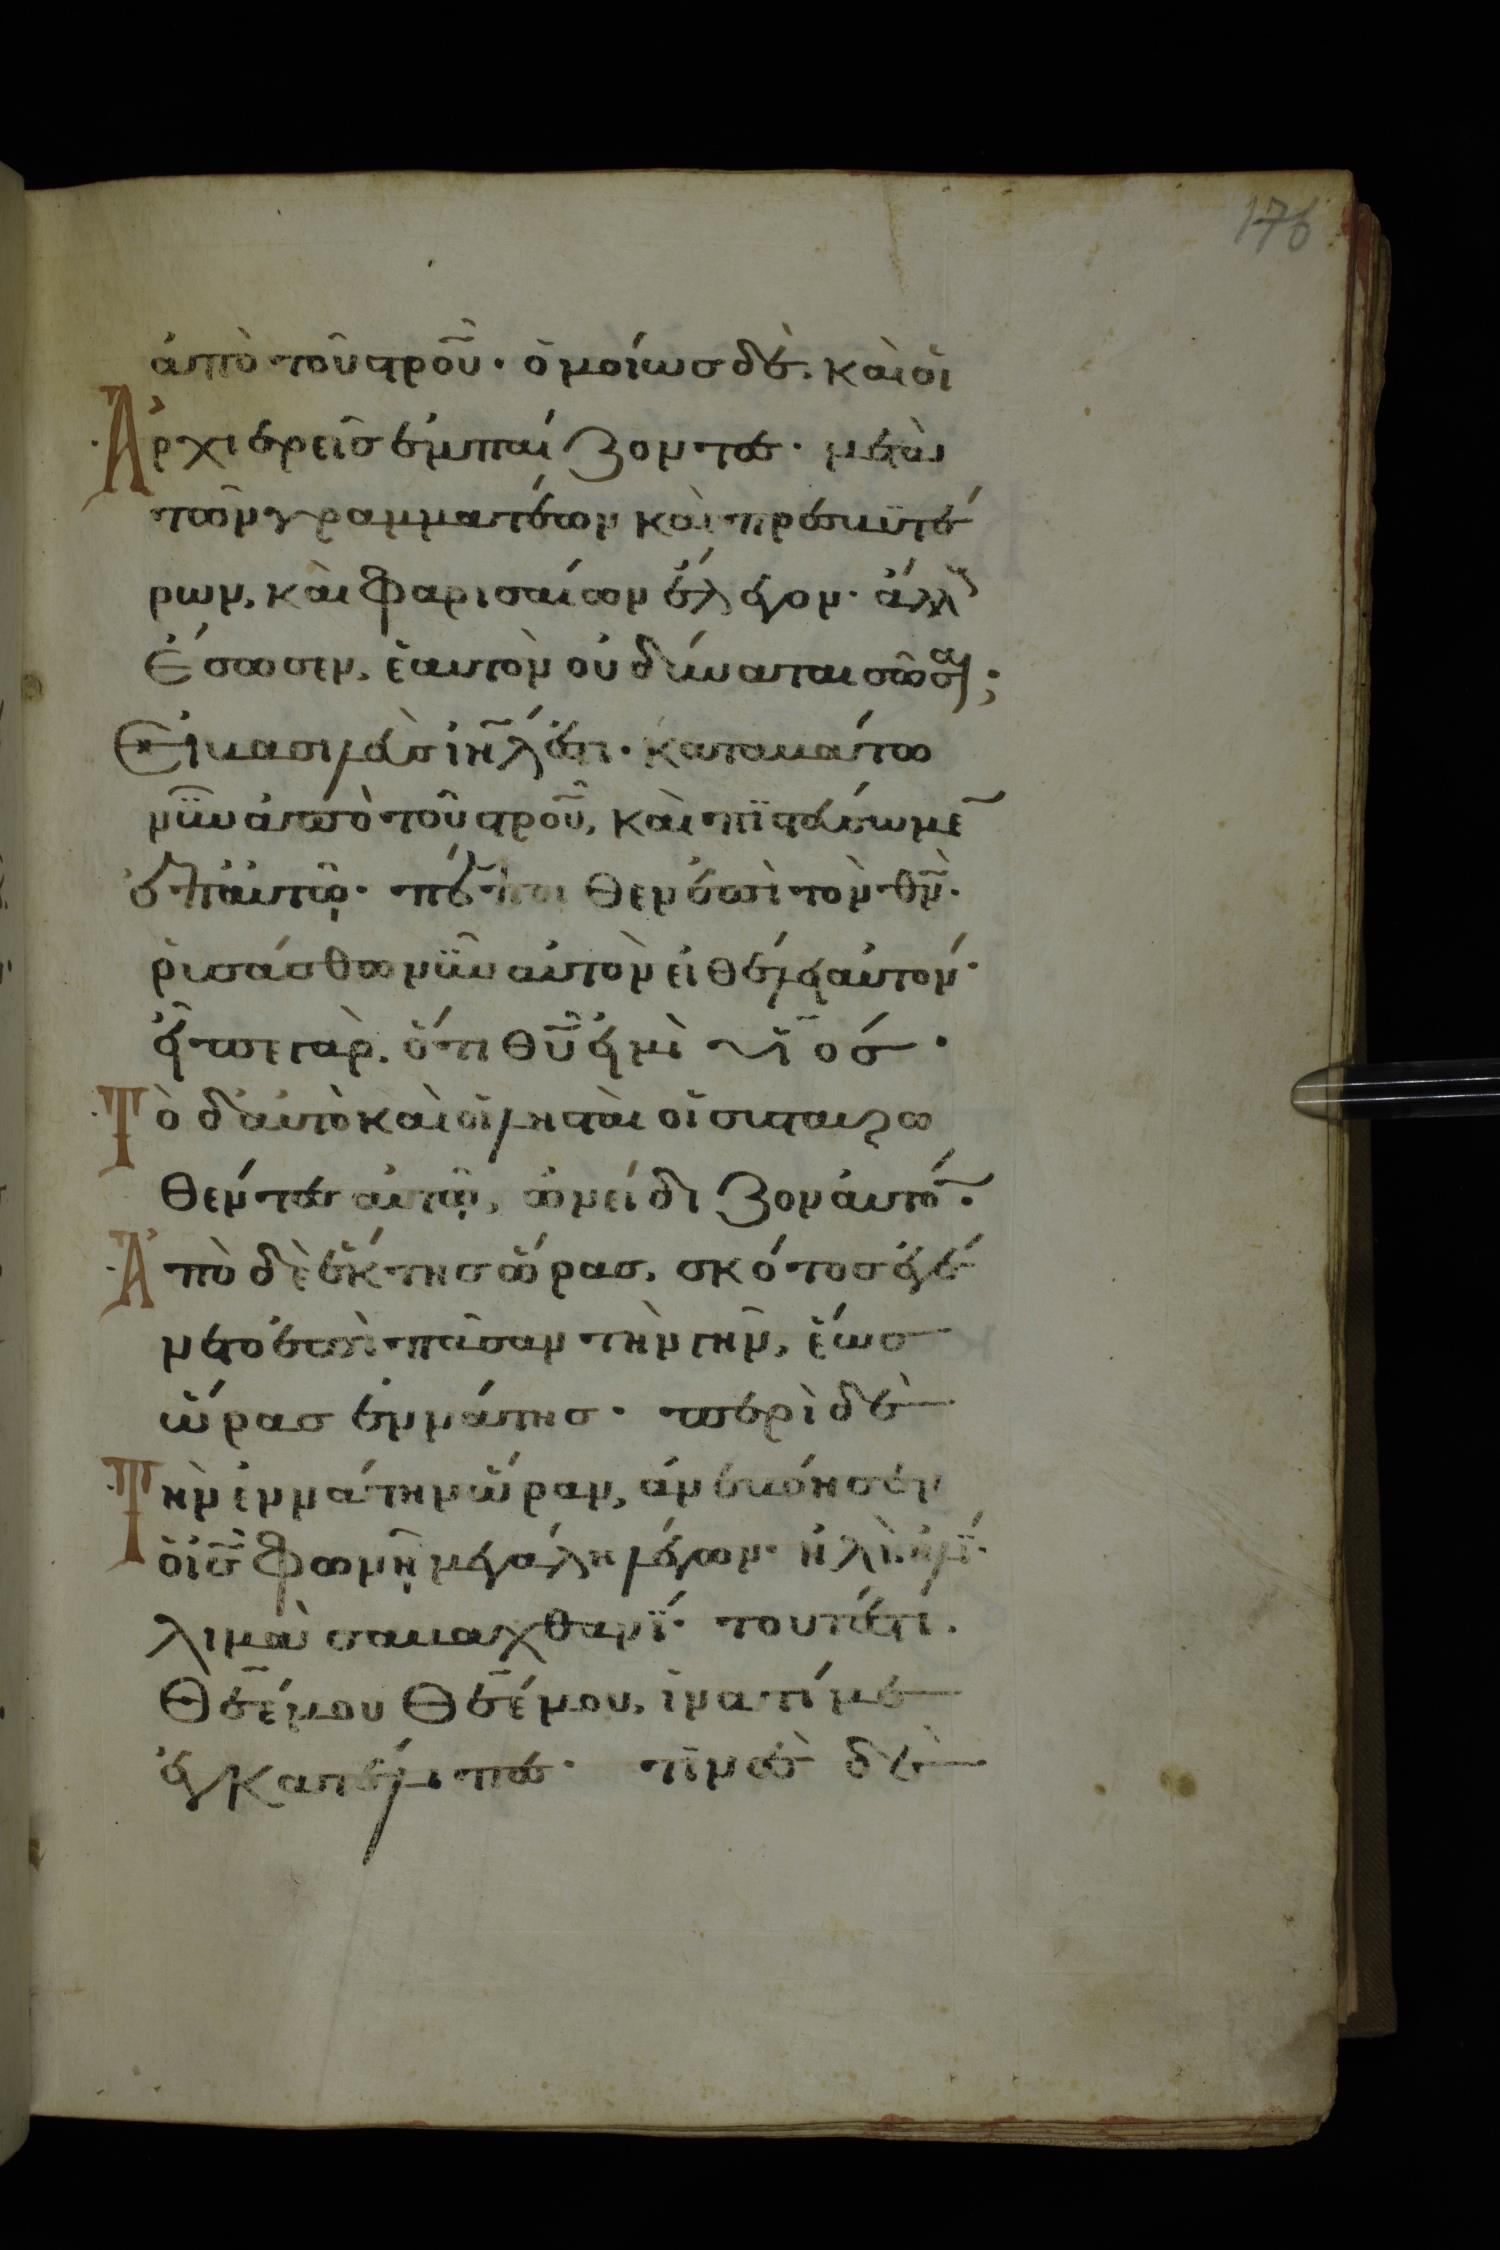 176
ἀπὸ τοῦ στροῦ· ὁμοίως δὲ καὶ οἱ
Ἀρχιερεῖς ἐμπαίζοντες· μετὰ
τῶν γραμματέων καὶ πρεσβυτέ
ρων, καὶ φαρισαίων ἔλεγον· ἄλλους
ἔσωσεν, ἑαυτὸν οὐ δύναται σῶσαι;
Εἰ βασιλεὺς ιηλ ἐστι· καταβάτω
νῦν ἀπὸ τοῦ στροῦ, καὶ πιστεύσωμε̄
ἐπ' αὐτῷ· πέποιθεν ἐπὶ τὸν θν̄·
ῥυσάσθω νῦν αὐτὸν εἰ θέλει αὐτόν·
εἶπεν γὰρ, ὅτι θῦ εἰμὶ υἱός·
Τὸ δ' αὐτὸ καὶ οἱ λῃσταὶ οἱ συσταυρω
θέντες αὐτῷ, ὠνείδιζον αὐτό̄·
Ἀπὸ δὲ ἕκτης ὥρας, σκότος ἐγέ
νετο ἐπὶ πᾶσαν τὴν γῆν, ἕως
ὥρας ἐννάτης· περὶ δὲ
Τὴν ἐννάτην ὥραν, ἀνεβόησεν
ὁ ις̄ φωνῇ μεγάλῃ λέγων· ἠλὶ ἠλί·
λιμὰ σαβαχθανί· τουτέστι.
Θεέ μου Θεέ μου, ἱνατί με
ἐγκατέλιπες· τινὲς δὲ